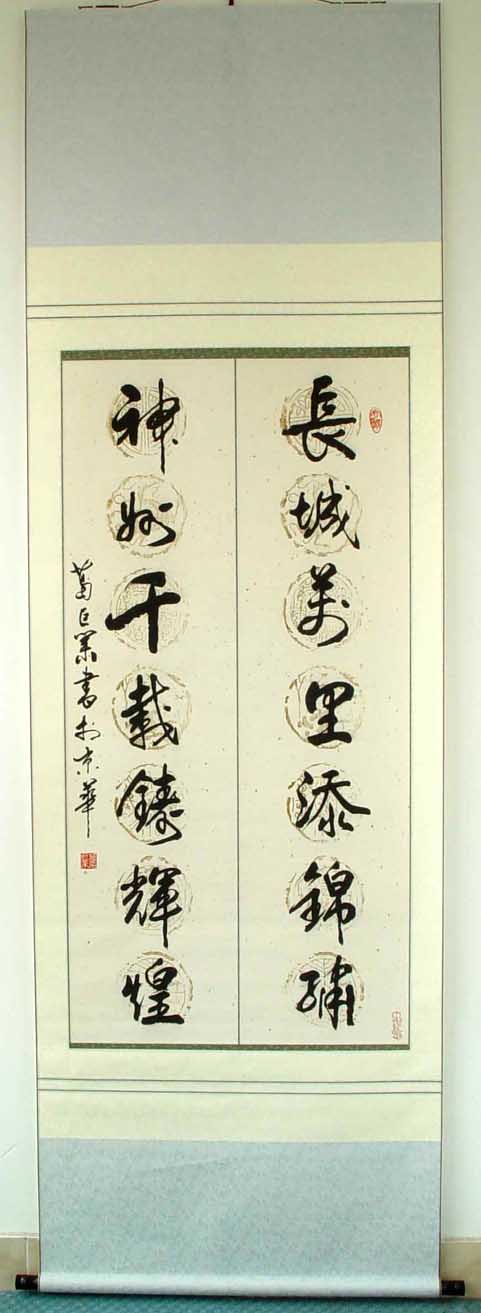 長城萬里添錦繡
神州千載鑄輝煌
葛巨眾書於京華